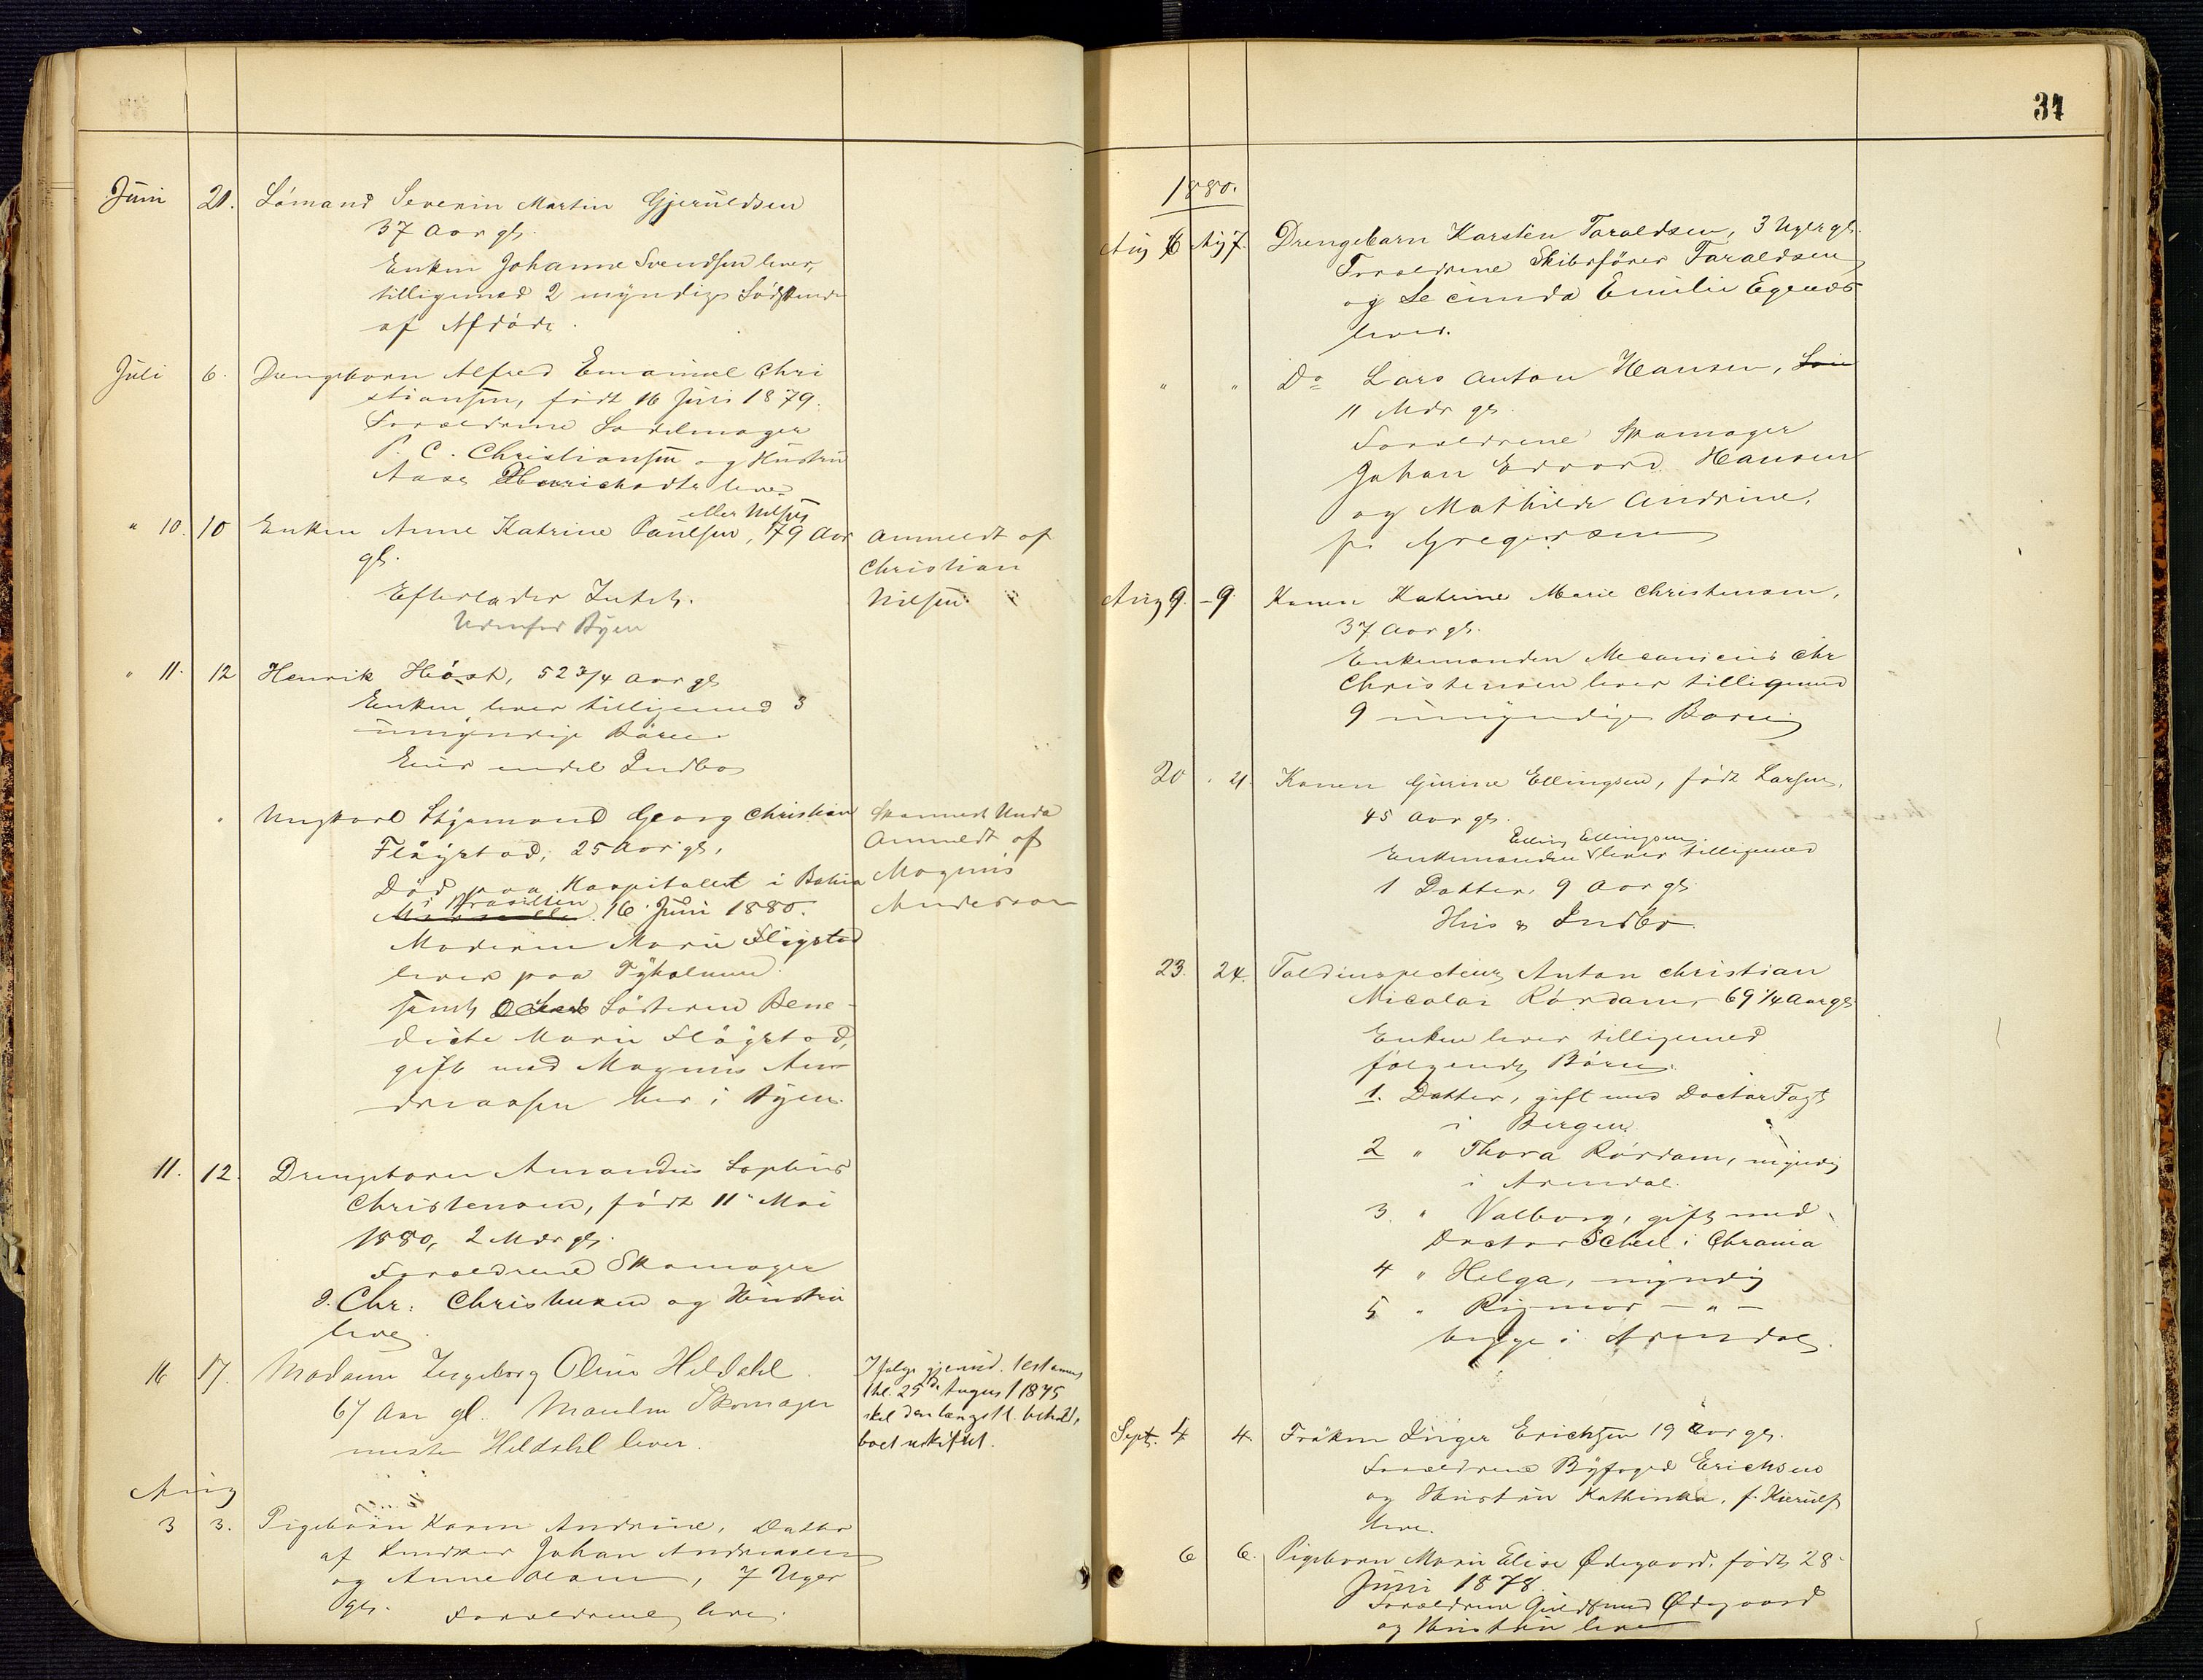 Juni 21. Sömand Severin Martin Gjeruldsen
37 Aar gl.
Enken Johanne Svendsen lever,
tilligemed 2 myndige Södskende
af Afdöde.
Juli 6. Drengebarn Alfred Emanuel Chri
stiansen, födt 16 Juli 1879.
Forældrene Sadelmager
P. C. Christiansen og Hustru
Aase lever
eller Nilsen
" 10. 10 Enken Anne Katrine Paulsen, 79 Aar
gl.
Efterlader Intet.
Udenfor Byen
Anmeldt af
Christian
Nilsen
" 11. 12 Henrik Höst, 52 3/4 Aar gl
Enken lever tilligemed 3
umyndige Börn.
Eier endel Indbo
" Ungkarl Styrmand Georg Christian
Fløystad, 25 Aar gl,
Död paa Hospitalet i Bahia
i Brasilien
16 Juni 1880.
Moderen Marie Fløystad
lever paa Tyholmen
samt Søsteren Bene-
dicte Marie Fløystad,
gift med Magnus An
dreassen her i Byen.
Skonnert Unda
Anmeldt af
Magnus
Andersson
11. 12. Drengebarn Amandus Sophus
Christensen, födt 11 Mai
1880, 2 Mdr gl.
Forældrene Skomager
J. Chr. Christensen og Hustru
lever.
16 17. Madame Ingeborg Oline Hildahl
67 Aar gl. Manden Skomager
mester Hildahl lever.
Ifølge gjensid. testament
thl. 25de August 1875
skal den længstl. beholde
boet uskiftet.
Aug
3 3. Pigebarn Karen Andrine, Datter
af Snedker Johan Andreassen
og Anne Olsen, 7 Uger
gl. Forældrene lever.
34
1880.
Aug 6 Aug 7. Drengebarn Karsten Taraldsen, 3 Uger gl.
Forældrene Skibsfører Taraldsen
og Secunda Emilie Egenæs
lever.
" " Do Lars Anton Hansen,
11 Mdr gl.
Forældrene Skomager
Johan Edvard Hansen
og Mathilde Andrine,
f. Gregersen
Aug 9. - 9. Konen Katrine Marie Christensen,
37 Aar gl.
Enkemanden Mecanicus Chr
Christensen lever tilligemed
9 umyndige Børn
20 " 21. Konen Gurine Ellingsen, født Larsen,
45 Aar gl.
Elling Ellingsen
Enkemanden lever tilligemed
1 Datter, 9 Aar gl
Hus & Indbo
23. 24. Toldinspecteur Anton Christian
Nicolai Rördam, 69 1/4 Aar gl
Enken lever tilligemed
følgende Börn:
1. Datter, gift med Doctor Fogt
i Bergen
2 " Thora Rördam, myndig
i Arendal.
3. " Valborg, gift med
Doctor Scheel i Chrania
4 " Helga, myndig
5 " Rigmor — " —
begge i Arendal.
Sept. 4 4. Fröken Inger Erichsen 19 Aar gl.
Forældrene Byfoged Erichsen
og Hustru Kathinka, f. Kierulf
lever.
6 6. Pigebarn Marie Elise Ødegaard, født 28
Juni 1878.
Forældrene Guldsmed Ødegaard
og Hustru lever